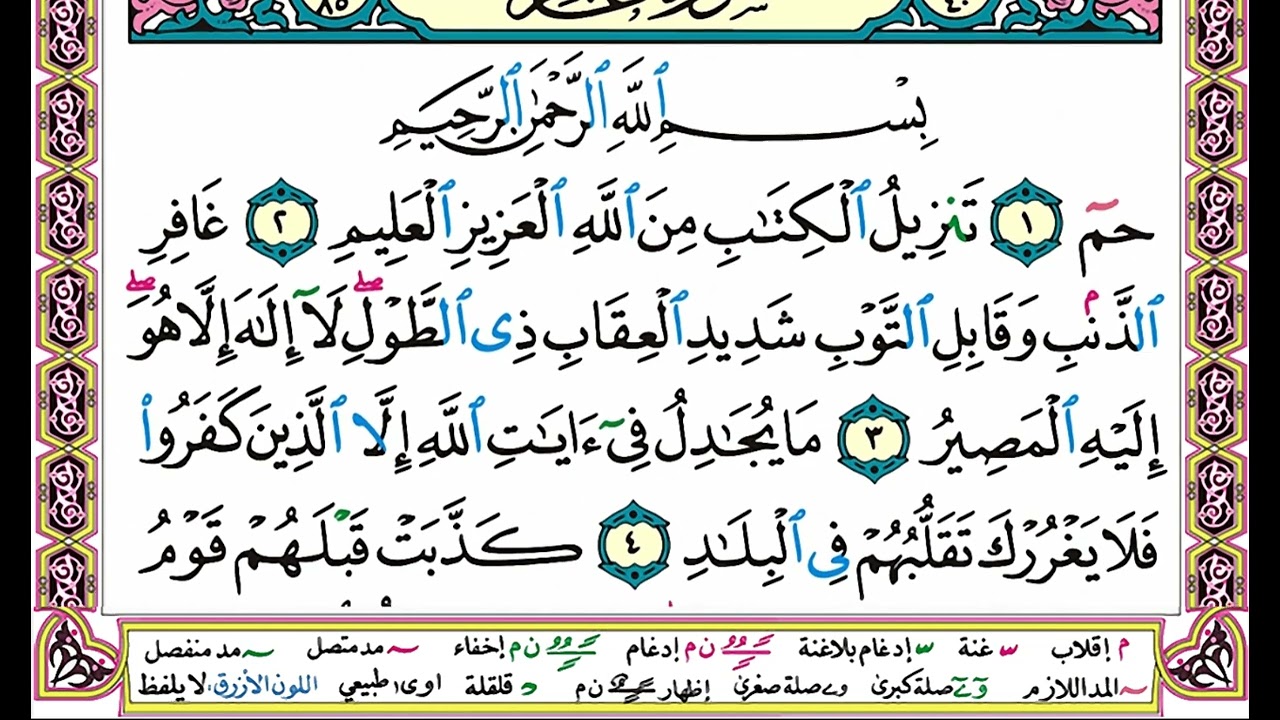 ٨٥ ٤٠
بِسْمِ ٱللَّهِ ٱلرَّحْمَٰنِ ٱلرَّحِيمِ
حمٓ ١ تَنزِيلُ ٱلْكِتَٰبِ مِنَ ٱللَّهِ ٱلْعَزِيزِ ٱلْعَلِيمِ ٢ غَافِرِ
ٱلذَّنۢبِ وَقَابِلِ ٱلتَّوْبِ شَدِيدِ ٱلْعِقَابِ ذِى ٱلطَّوْلِۖ لَآ إِلَٰهَ إِلَّا هُوَۖ
إِلَيْهِ ٱلْمَصِيرُ ٣ مَا يُجَٰدِلُ فِىٓ ءَايَٰتِ ٱللَّهِ إِلَّا ٱلَّذِينَ كَفَرُوا۟
فَلَا يَغْرُرْكَ تَقَلُّبُهُمْ فِى ٱلْبِلَٰدِ ٤ كَذَّبَتْ قَبْلَهُمْ قَوْمُ
م إقلاب س غنة س إدغام بلاغنة ن م إدغام ن م إخفاء مد متصل مد منفصل
المد اللازم و ے صلة كبرى و ے صلة صغرى إظهار ن م د قلقلة اوى طبيعي اللون الأزرق: لا يلفظ